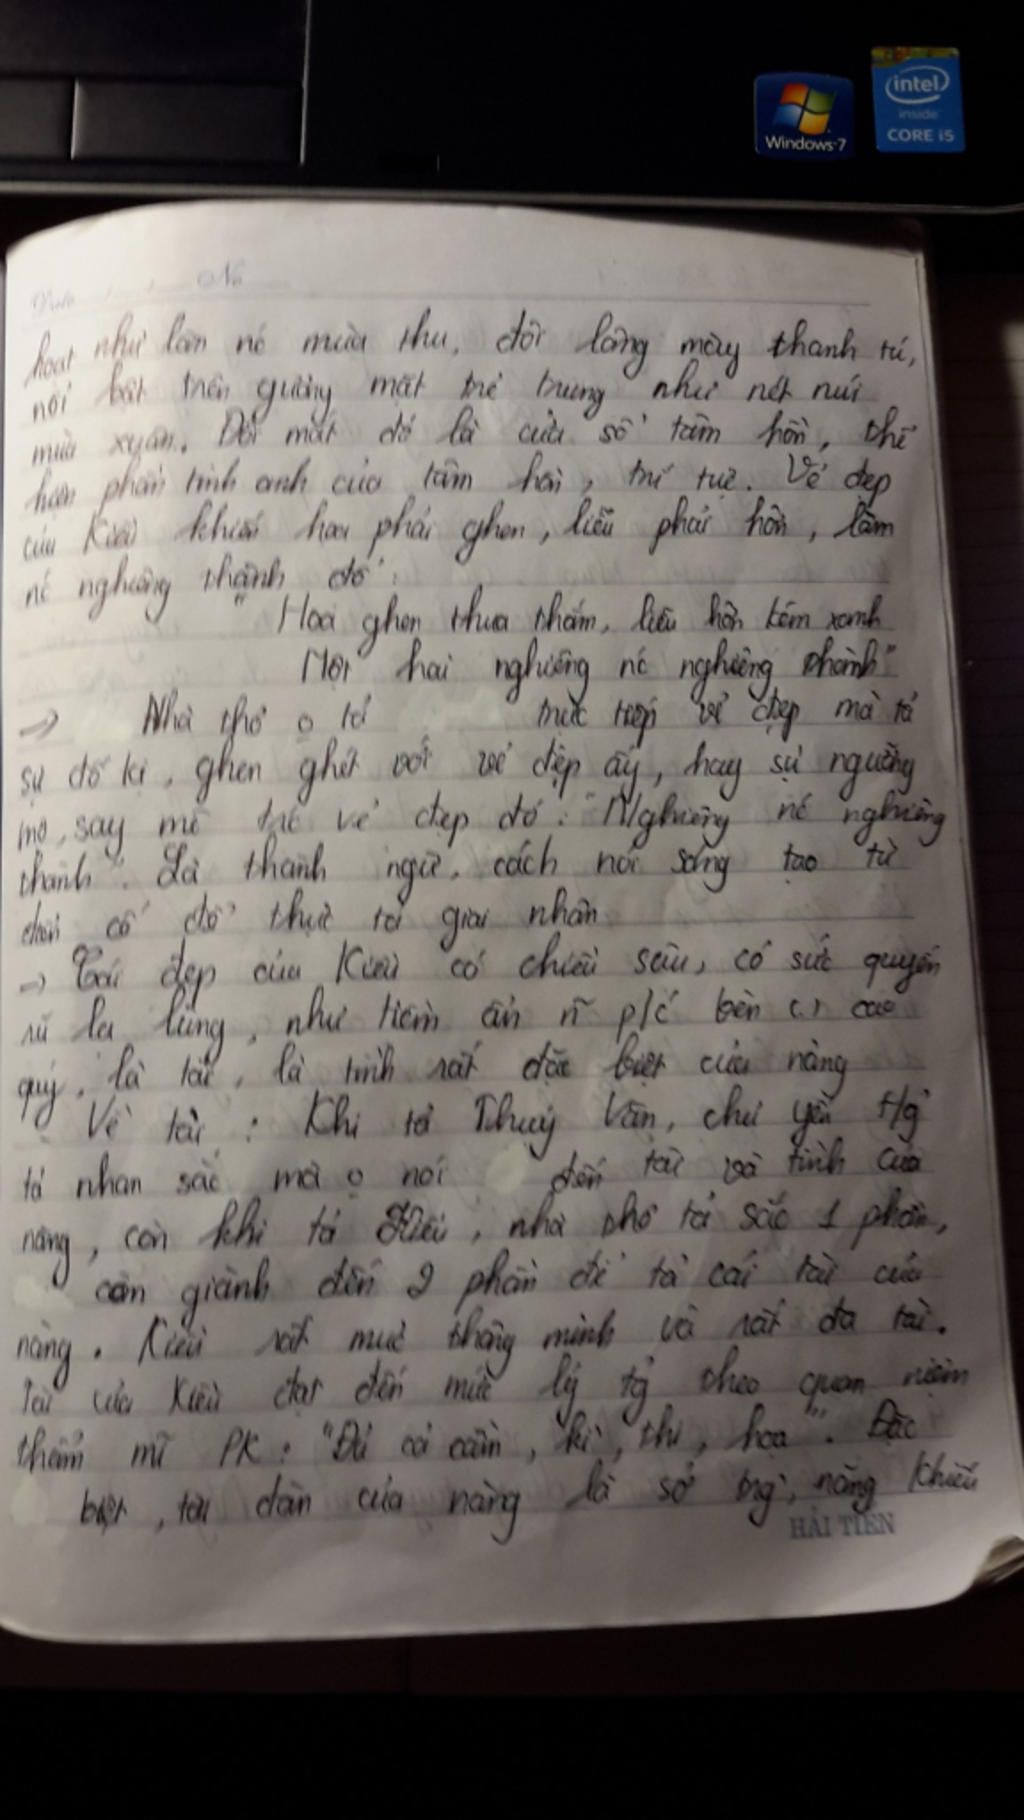 intel
inside
CORE i5
Windows 7
Date No
hoạt như làn nć mùa thu, đôi lông mày thanh tú,
nổi bật trên gương mặt trẻ trung như nét núi
mùa xuân. Đôi mắt đó là cửa sổ tâm hồn, thể
hiện phần tinh anh của tâm hồn, trí tuệ. Vẻ đẹp
của Kiều khiến hoa phải ghen, liễu phải hờn, làm
nć nghiêng thành đổ:
"Hoa ghen thua thắm, liễu hờn kém xanh
Một hai nghiêng nć nghiêng thành"
→ Nhà thơ o tả trực tiếp vẻ đẹp mà tả
sự đố kị, ghen ghét với vẻ đẹp ấy, hay sự ngưỡng
mộ, say mê trć vẻ đẹp đó. "Nghiêng nć nghiêng
thành". Là thành ngữ, cách nói sáng tạo từ
điển cố để cực tả giai nhân
→ Cái đẹp của Kiều có chiều sâu, có sức quyến
rũ lạ lùng, như tiềm ẩn n~ p/c bên tr cao
quý, là tài, là tình rất đặc biệt của nàng
Về tài: Khi tả Thuý Vân, chủ yếu t/g
tả nhan sắc mà o nói đến tài và tình của
nàng, còn khi tả Kiều, nhà thơ tả sắc 1 phần,
còn giành đến 2 phần để tả cái tài của
nàng. Kiều rất mực thông minh và rất đa tài.
Tài của Kiều đạt đến mức lý tg~ theo quan niệm
thẩm mĩ PK: "Đủ cả cầm, kì, thi, họa". Đặc
biệt, tài đàn của nàng là sở trg`, năng khiếu
HẢI TIẾN